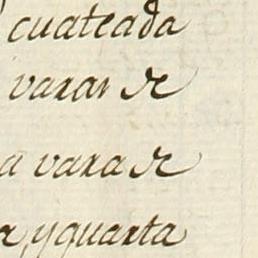 cuateada
varas de
a vara de
a, y quarta